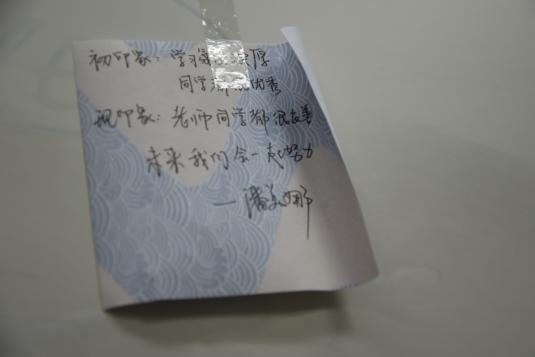 初印象：学习氛围浓厚
同学都很优秀
现印象：老师同学都很友善
未来我们会一起努力
—潘美娜